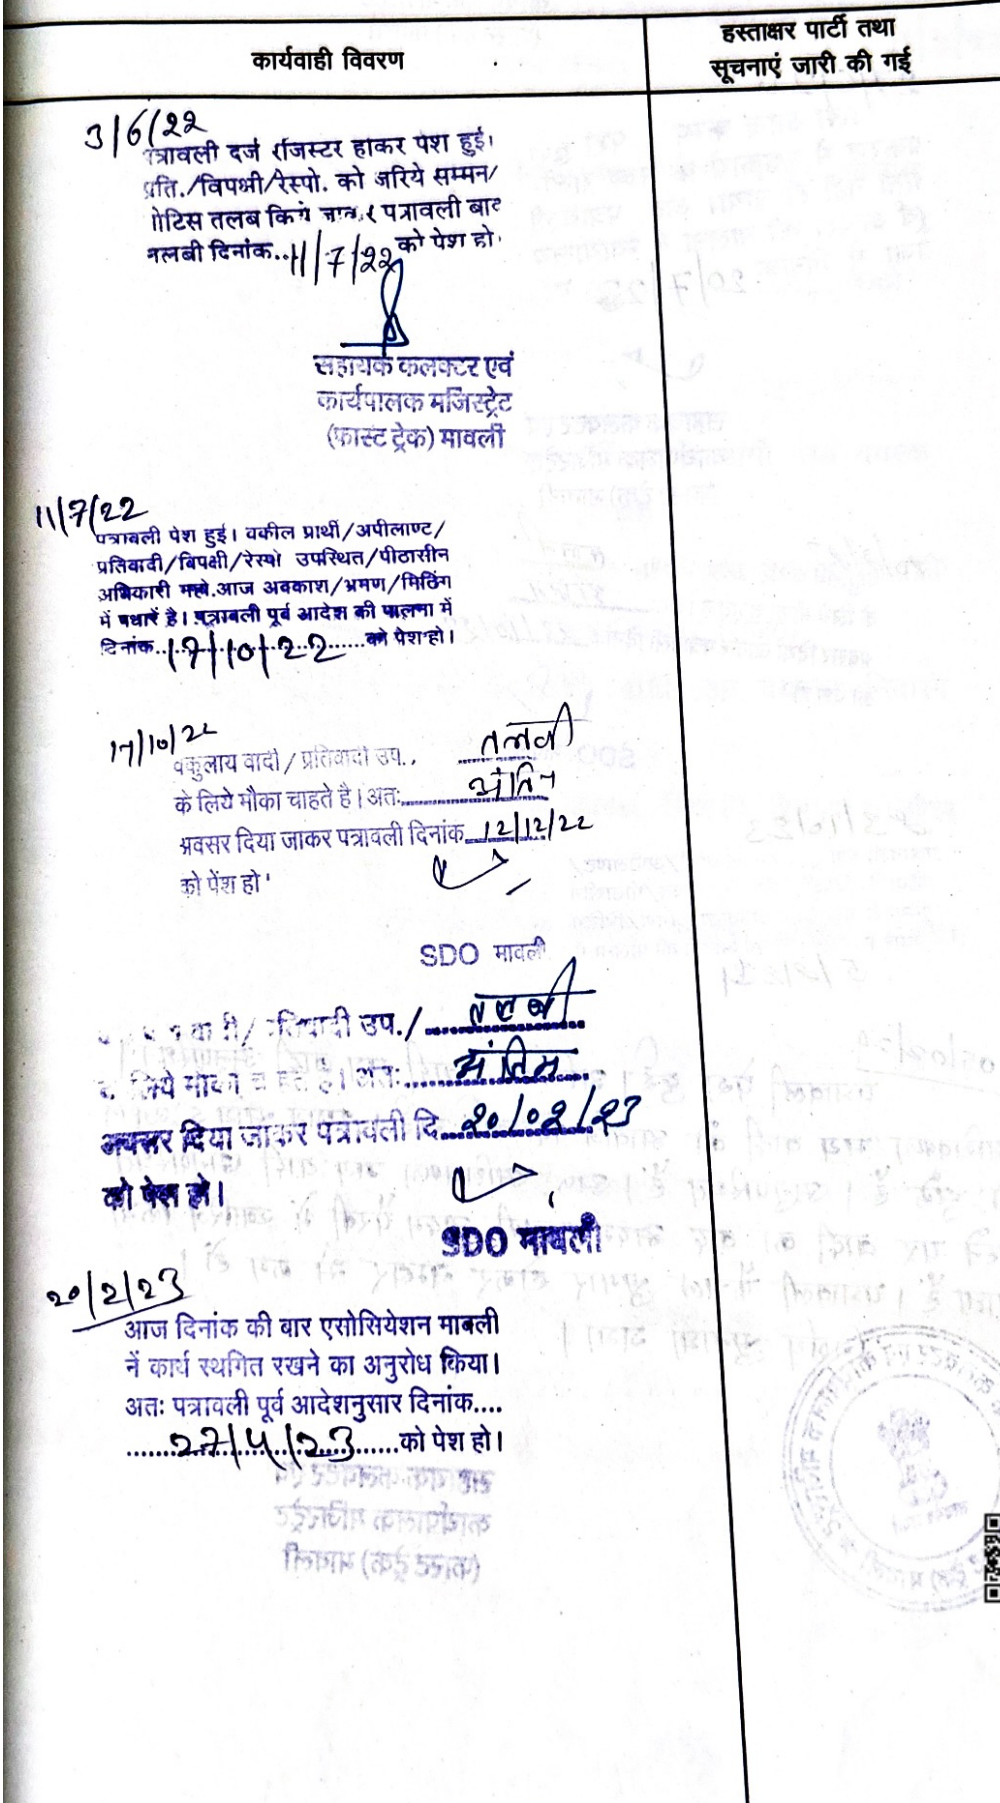 कार्यवाही विवरण
हस्ताक्षर पार्टी तथा
सूचनाएं जारी की गई
3/6/22
त्रावली दर्ज रजिस्टर होकर पेश हुई।
प्रति./विपक्षी/रेस्पो. को जरिये सम्मन/
नोटिस तलब किये जाकर पत्रावली बाद
तलबी दिनांक..11/7/22 को पेश हो।
सहायक कलक्टर एवं
कार्यपालक मजिस्ट्रेट
(फास्ट ट्रेक) मावली
11/7/22
पत्रावली पेश हुई। वकील प्रार्थी/अपीलाण्ट/
प्रतिवादी/विपक्षी/रेस्पो उपस्थित/पीठासीन
अधिकारी आज अवकाश/भ्रमण/मिटिंग
में पधारें है। पत्रावली पूर्व आदेश की पालना में
दिनांक..17/10/22....को पेश हो।
17/10/22
वकुलाय वादी/प्रतिवादी उप.. तलबी
के लिये मौका चाहते है। अतः....अंतिम
अवसर दिया जाकर पत्रावली दिनांक 12/12/22
को पेंश हो
SDO मावली
उप./....तलबी
लिये मौका है। अतः....अंतिम
अवसर दिया जाकर पत्रावली दि. 20/02/23
को पेश हो।
SDO मावली
20/2/23
आज दिनांक की बार एसोसियेशन मावली
नें कार्य स्थगित रखने का अनुरोध किया।
अतः पत्रावली पूर्व आदेशनुसार दिनांक....
....27/4/23....को पेश हो।